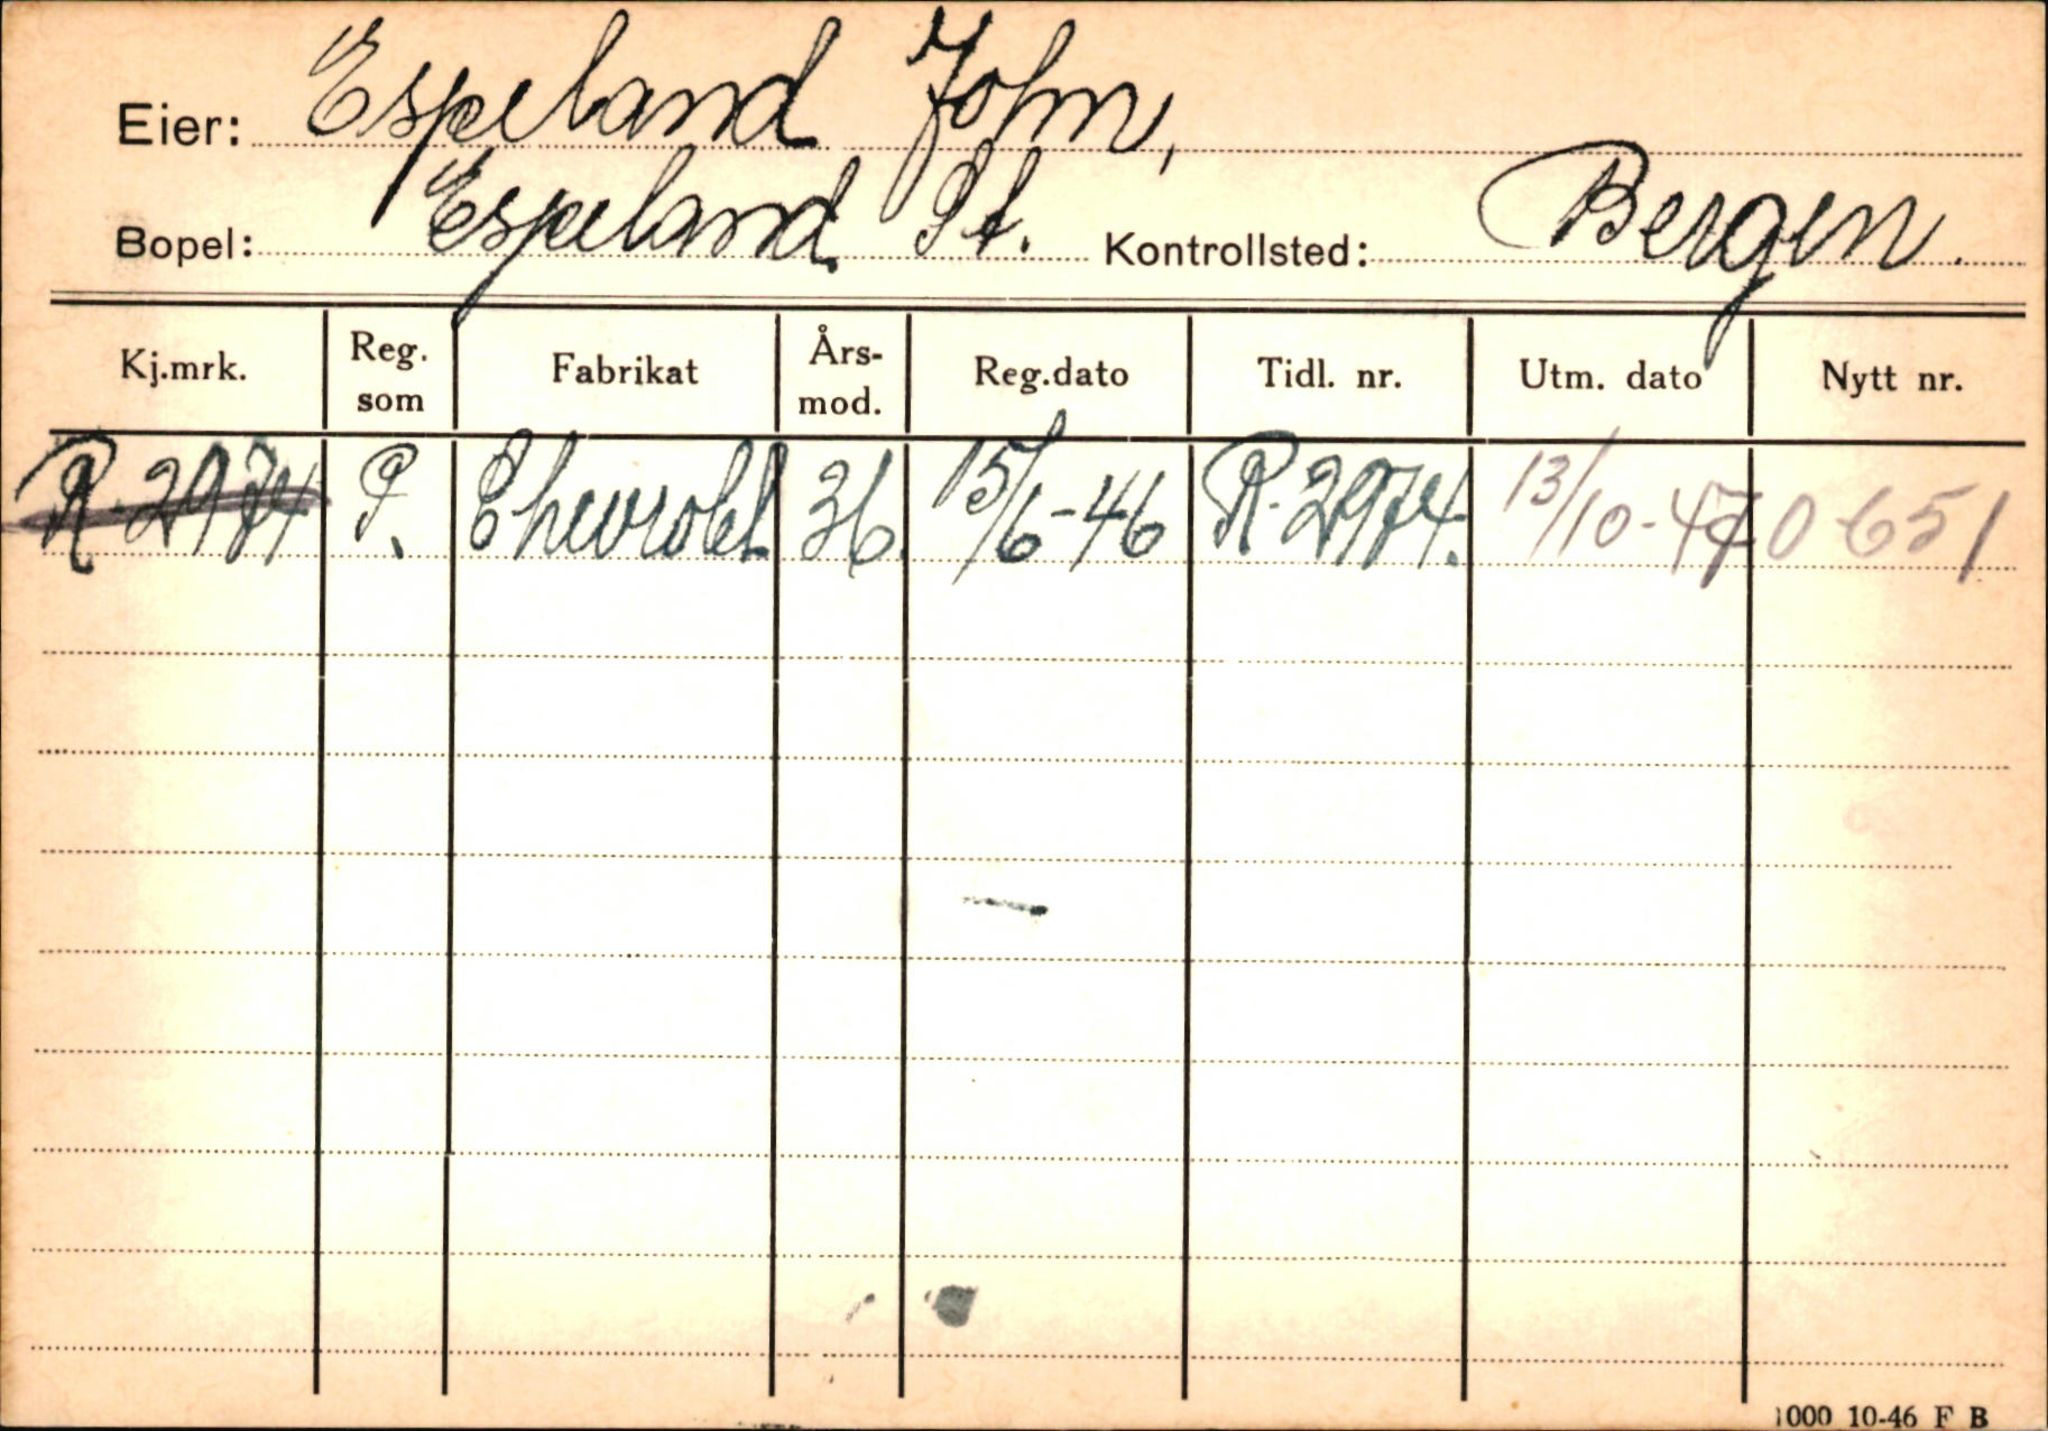 Eier: Espeland John,
Bopel: Espeland St. Kontrollsted: Bergen.
Kj.mrk. Reg. som Fabrikat Års-mod. Reg.dato Tidl. nr. Utm. dato Nytt nr.
R-2974 P. Chevrolet 36. 15/6-46 R-2974. 13/10-47 O-651
1000 10-46 F B